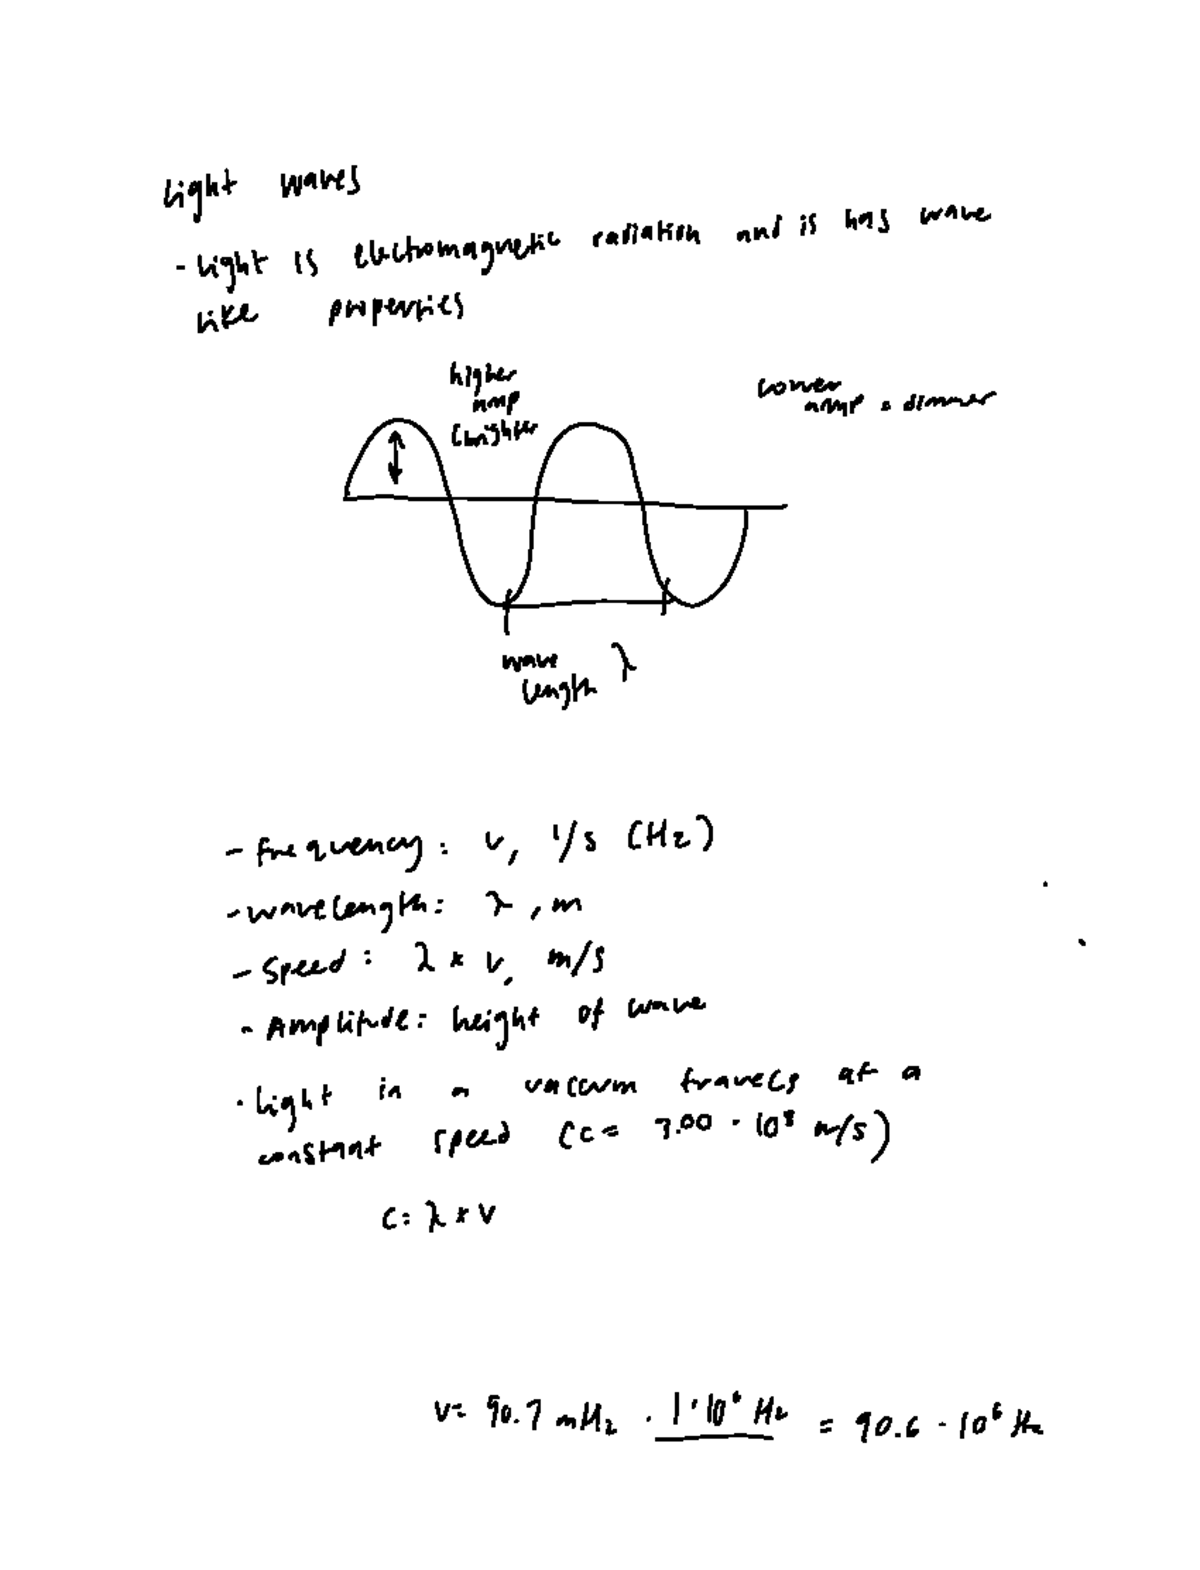 Light waves
- Light is electromagnetic radiation and is has wave
like properties
higher
amp
(brighter
lower
amp = dimmer
wave
length λ
- Frequency: v, 1/s (Hz)
- wavelength: λ, m
- Speed: λ * v, m/s
- Amplitude: height of wave
· Light in a vaccum travels at a
constant speed (c = 3.00 · 10⁸ m/s)
c = λ * v
v = 90.7 mHz · 1·10⁶ Hz = 90.6 · 10⁶ Hz